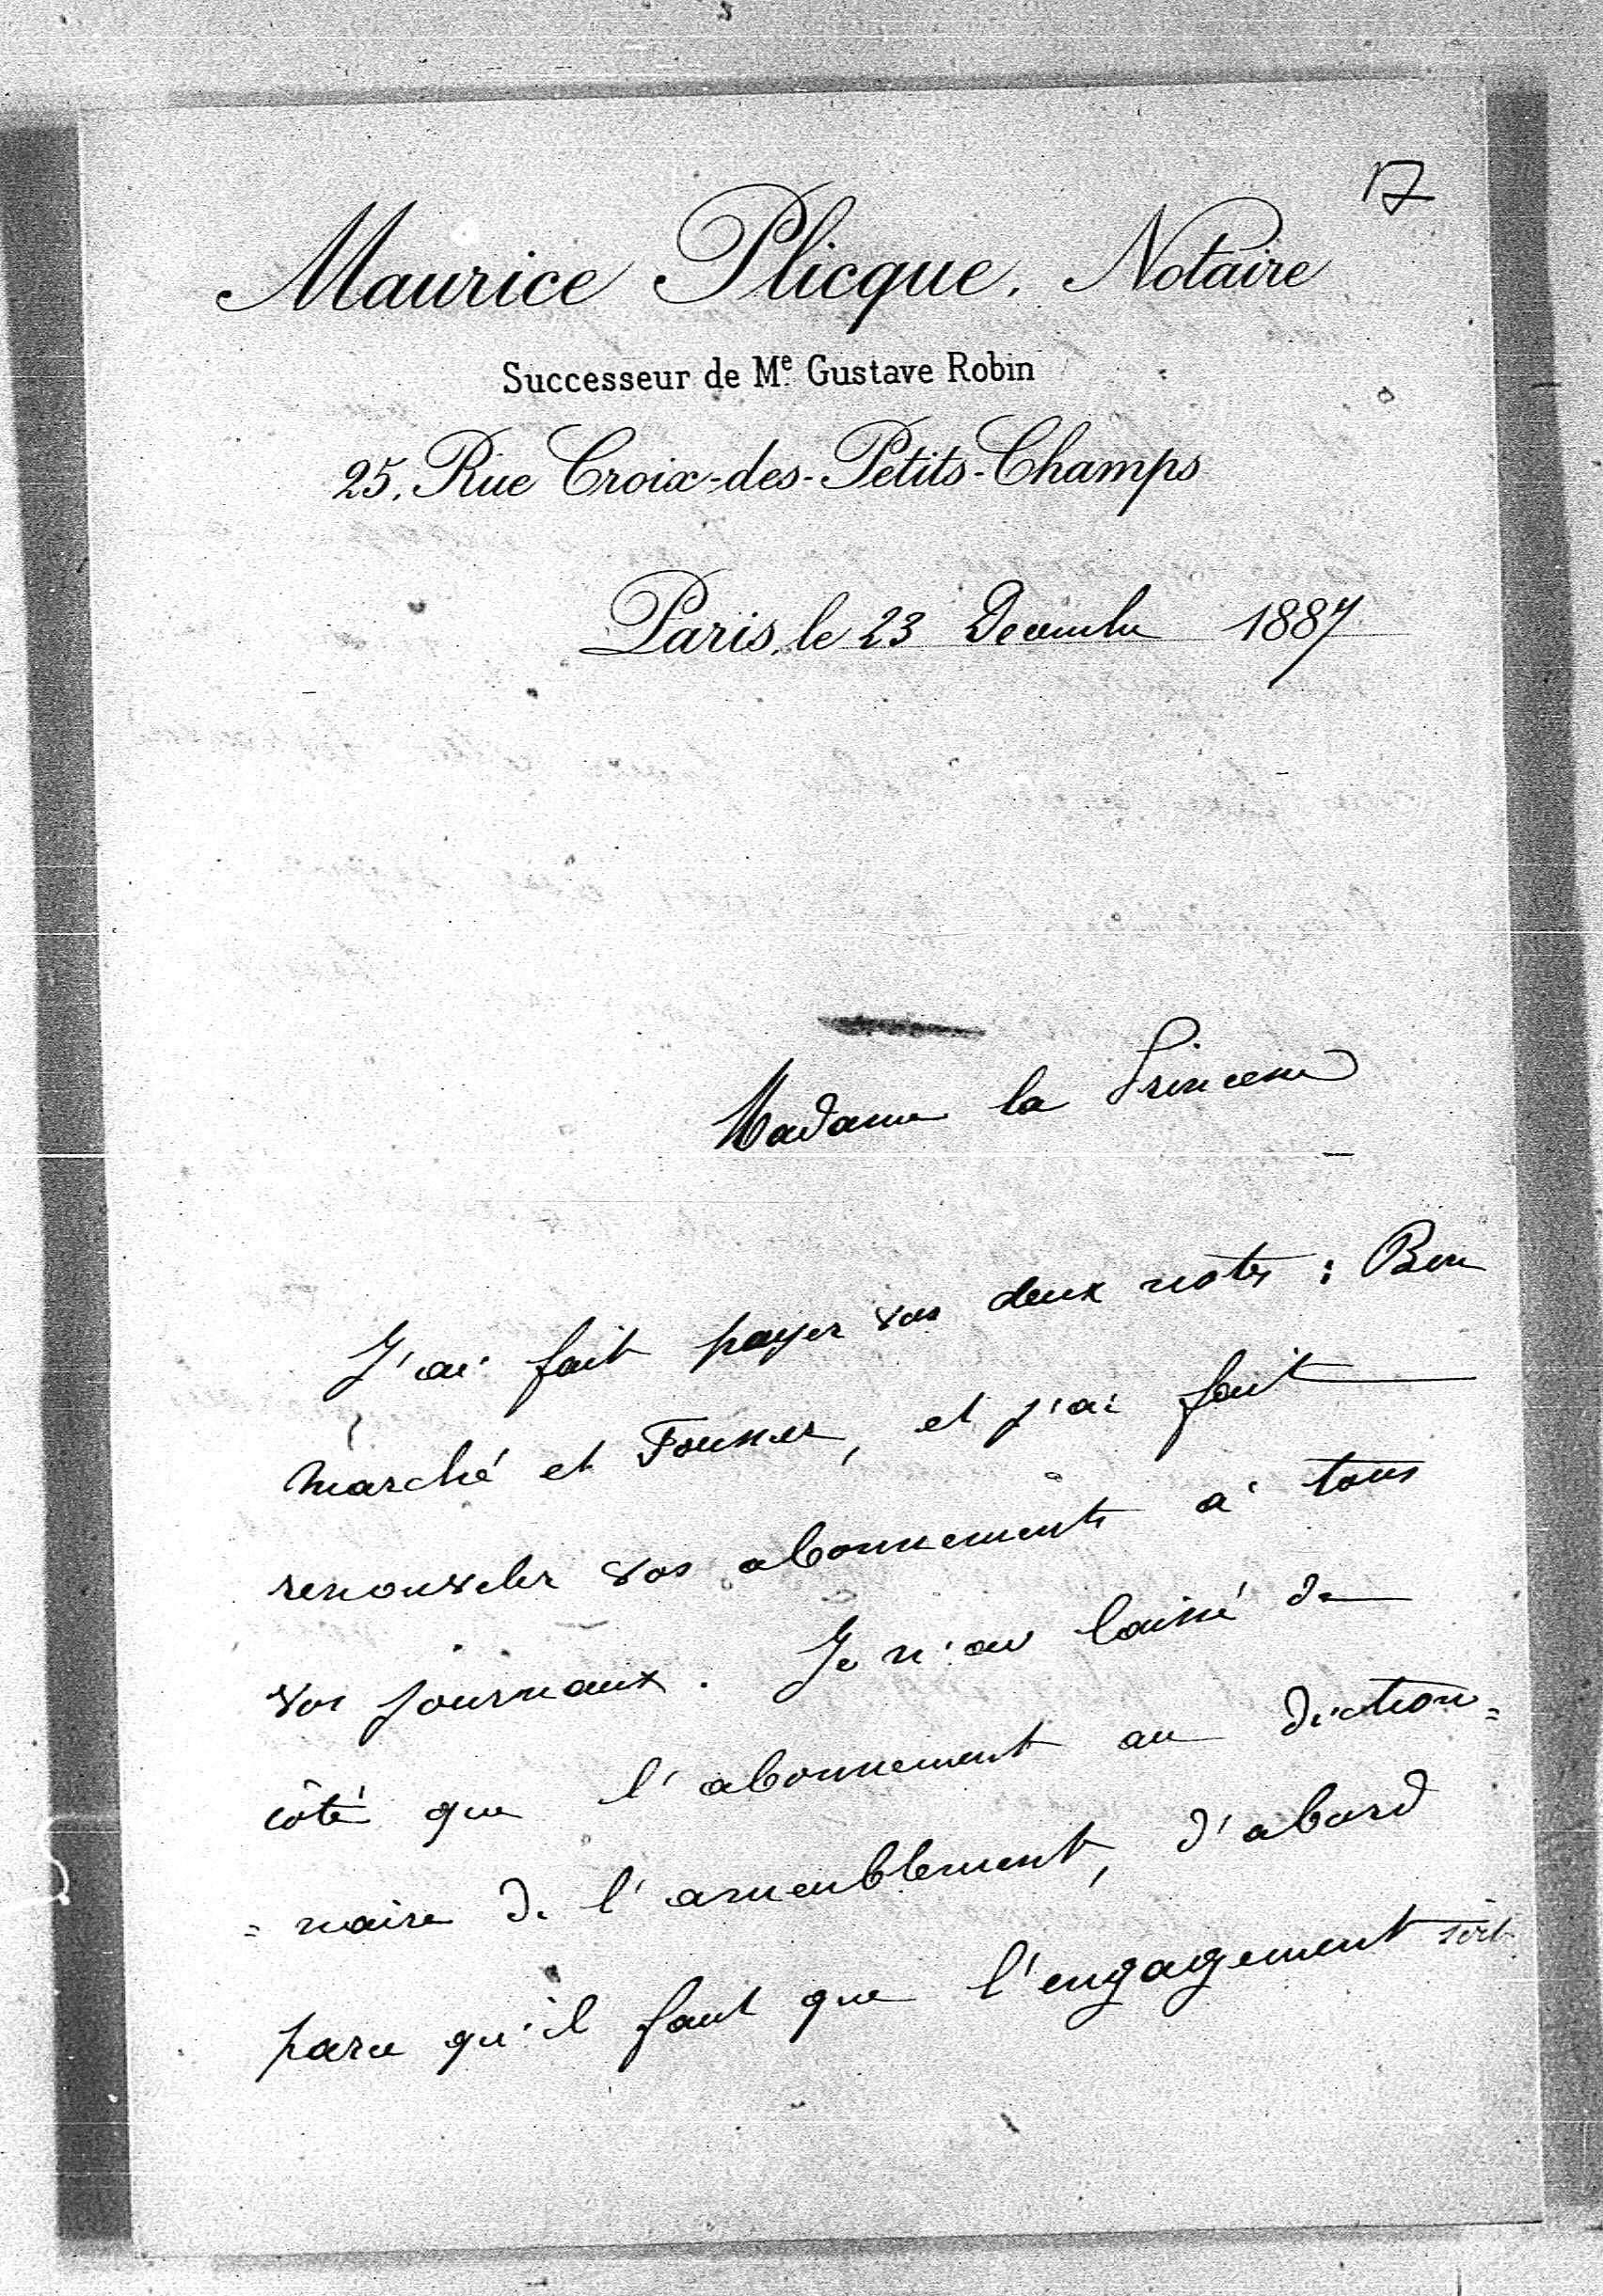 17
Maurice Plicque, Notaire
Successeur de Me Gustave Robin
25, Rue Croix-des-Petits-Champs
Paris, le 23 Decembre 1887
Madame la Princesse
J'ai fait payer vos deux notes : Bon
marché et et j'ai fait
renouveler vos abonnements à tous
vos journaux. Je n'ai laissé de
côté que l'abonnement au diction=
=naire de l'ameublement, d'abord
parce qu'il faut que l'engagement soit